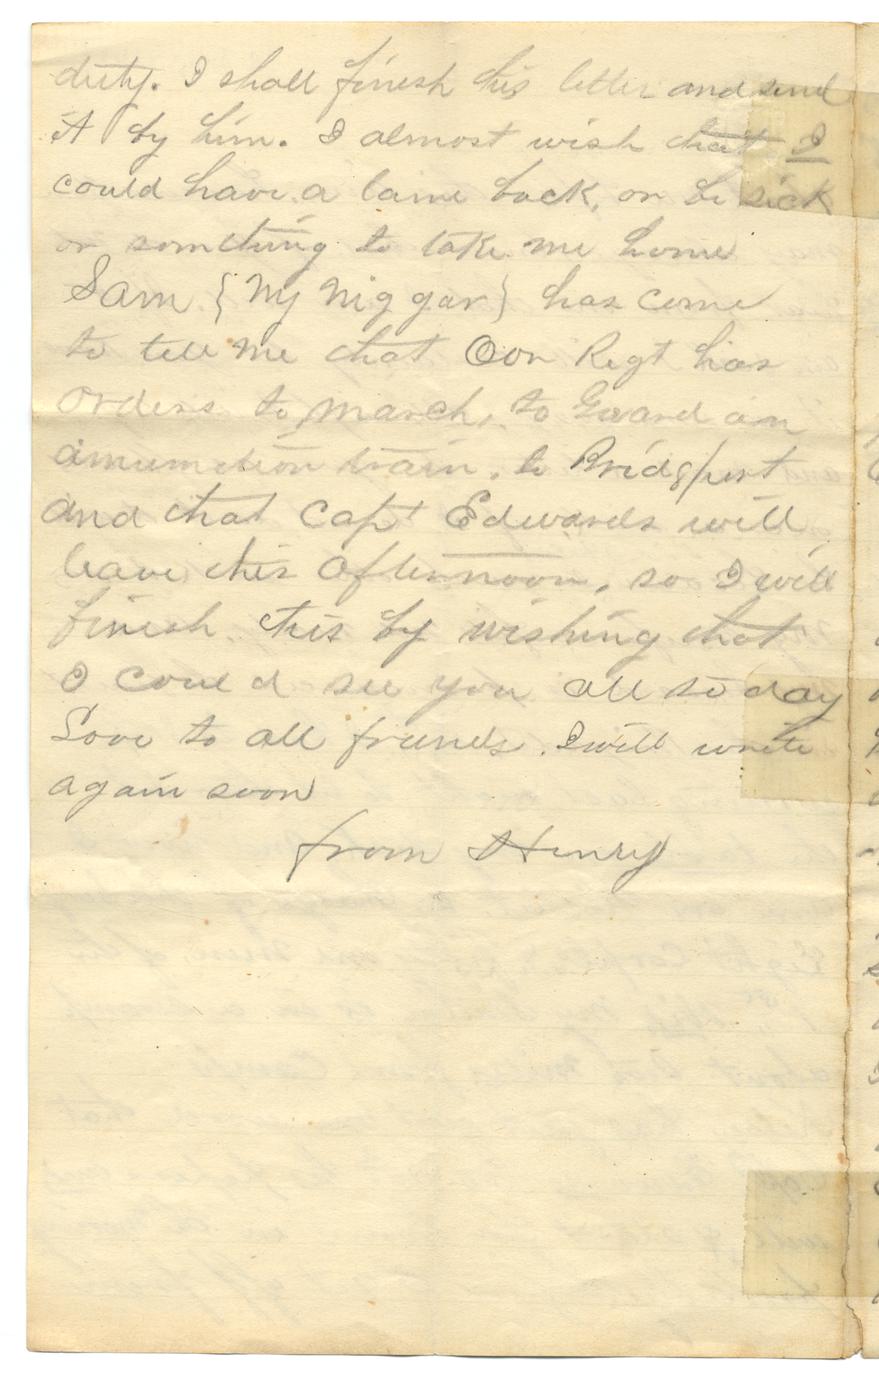 duty. I shall finish this letter and send
it by him. I almost wish that I
could have a lame back, or be sick
or somthing to take me home
Sam {My Niggar} has come
to tell me that Our Regt has
Orders to march, to Guard an
amunction train, to Bridgport
and that Capt Edwards will
leave this afternoon, so I will
finish this by wishing that
I could see you all to day
Love to all friends. I will write
again soon
from Henry